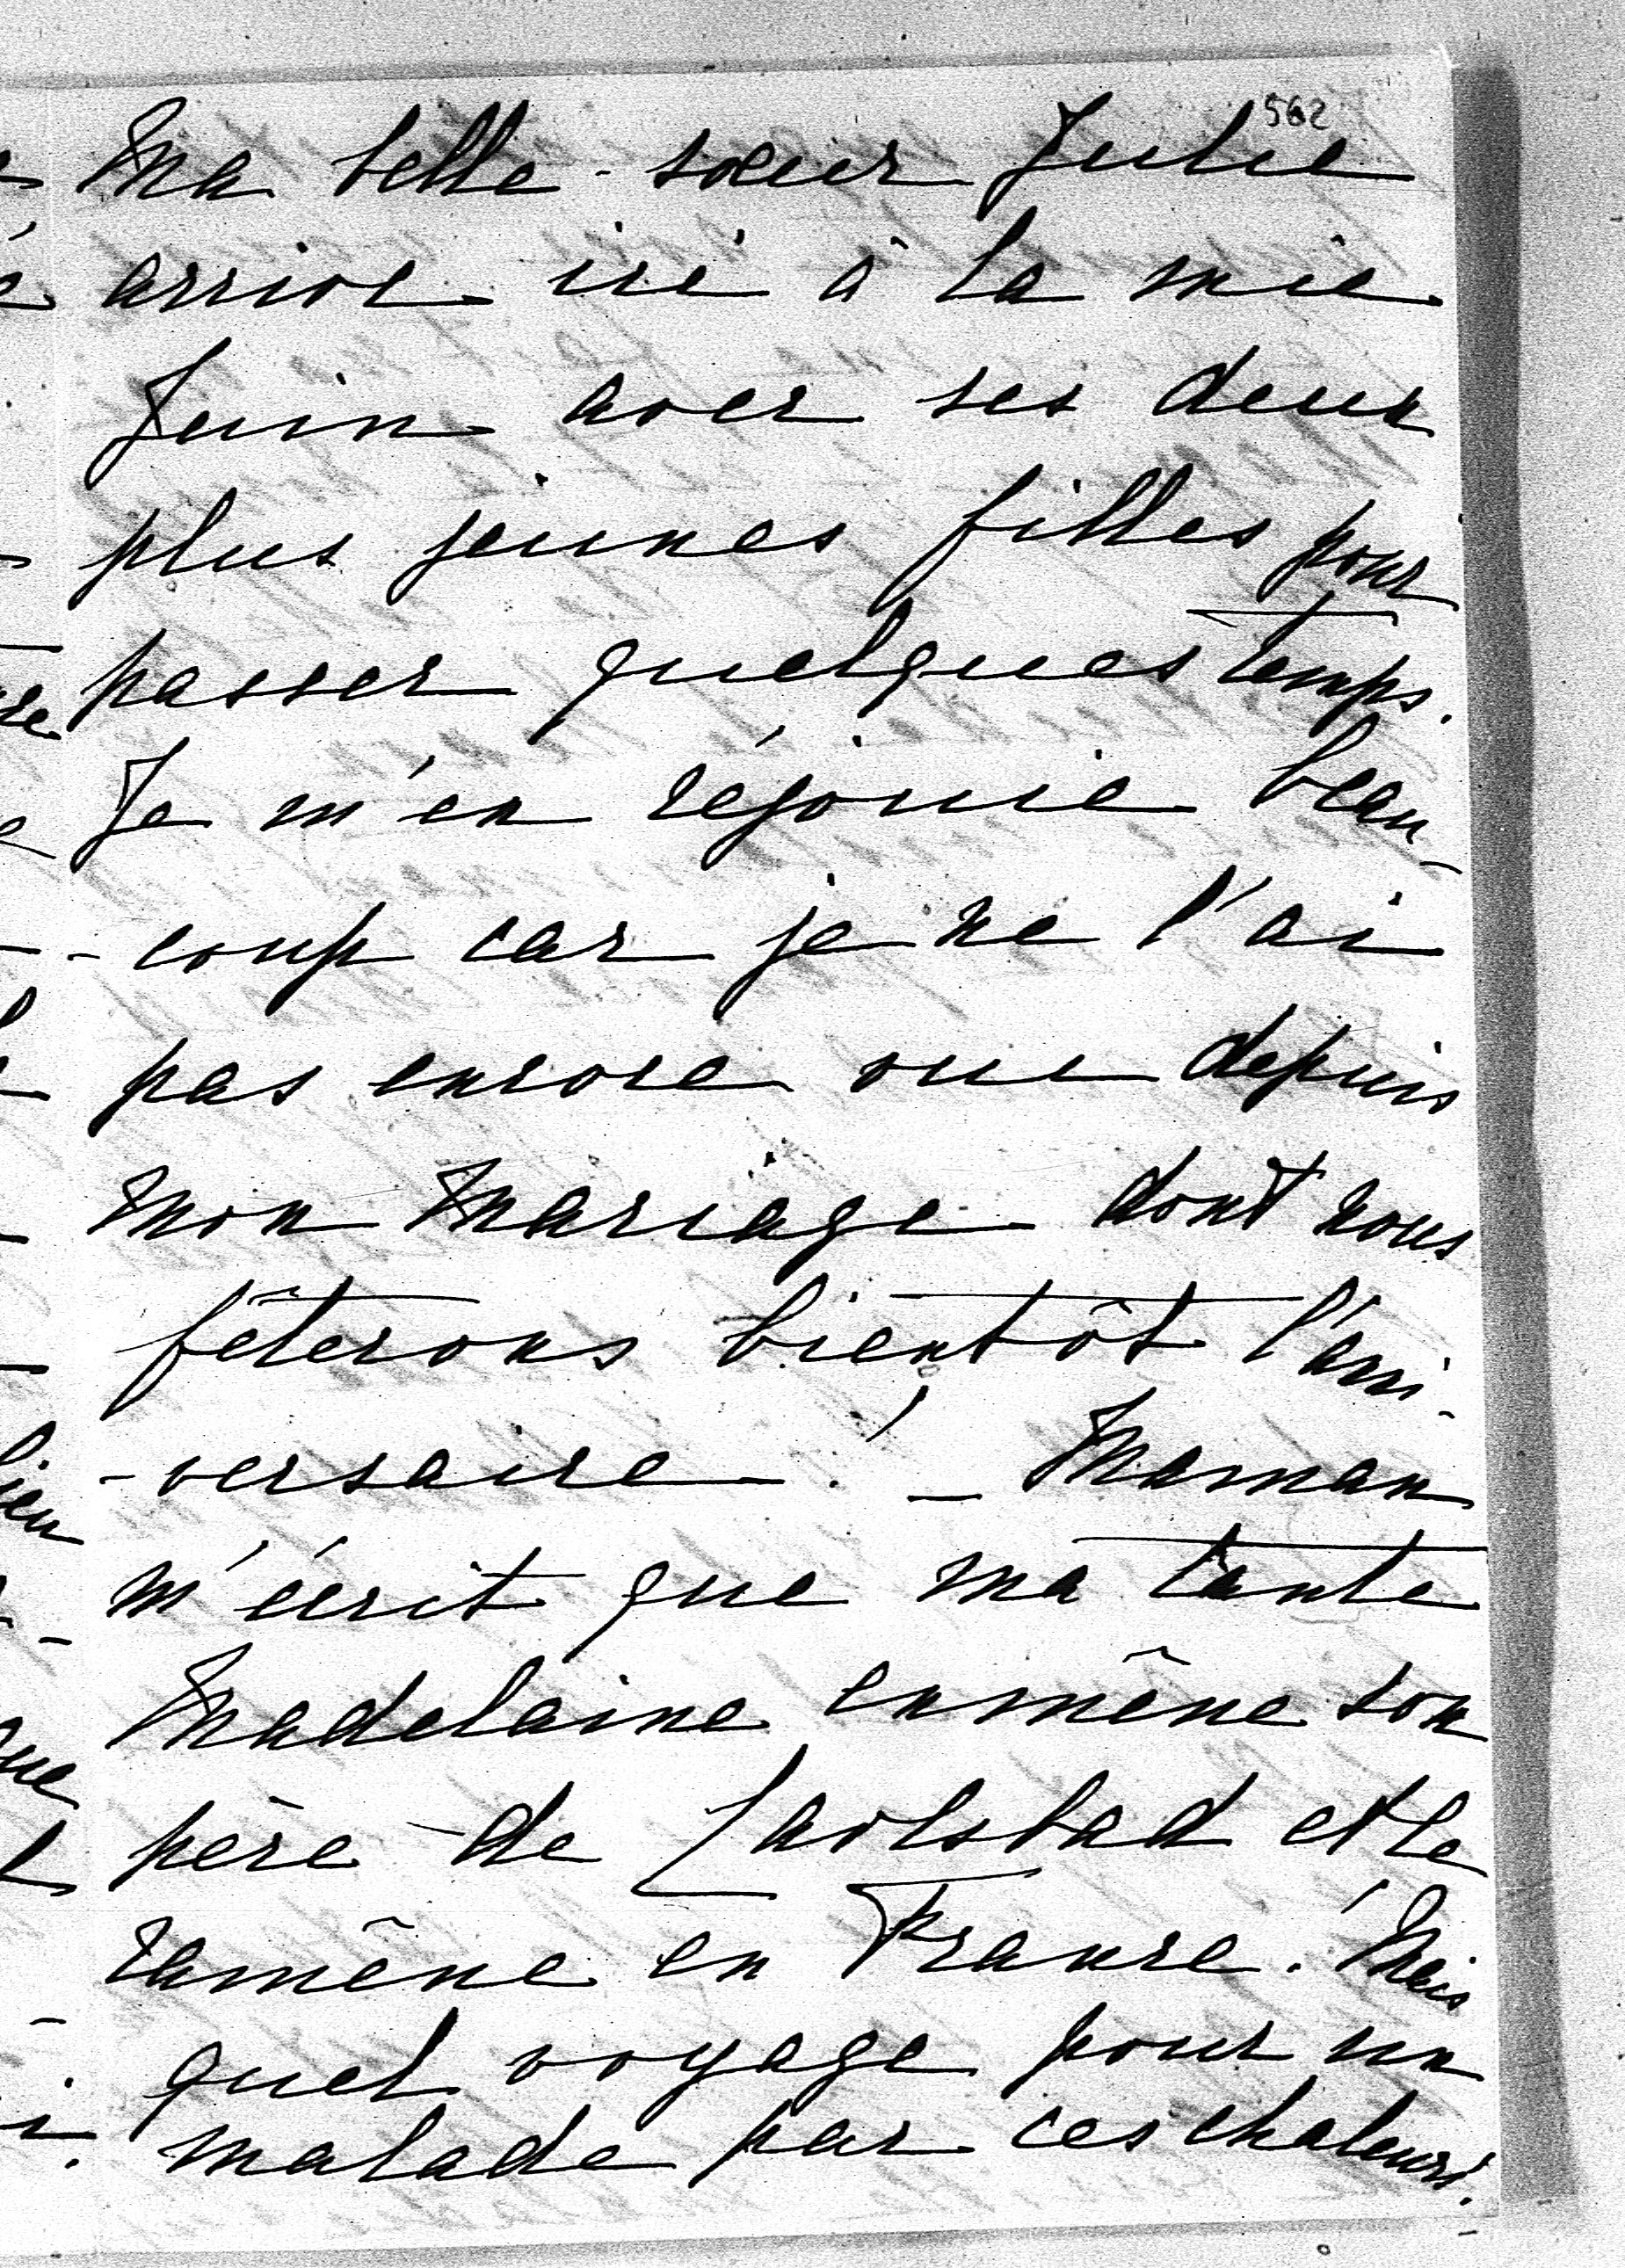 562
Ma belle-sœur Julie
arrive ici à la mie
Juin avec ses deux
plus jeunes filles pour
passer quelques temps.
Je m'en réjouie beau-
-coup car je ne l'ai
pas encore vue depuis
mon mariage dont nous
fêterons bientôt l'anni-
-versaire! – Maman
m'écrit que ma tante
Madelaine enmène son
père de Carlsbad et le
ramène en France! Mais
quel voyage pour un
malade par ces chaleurs!